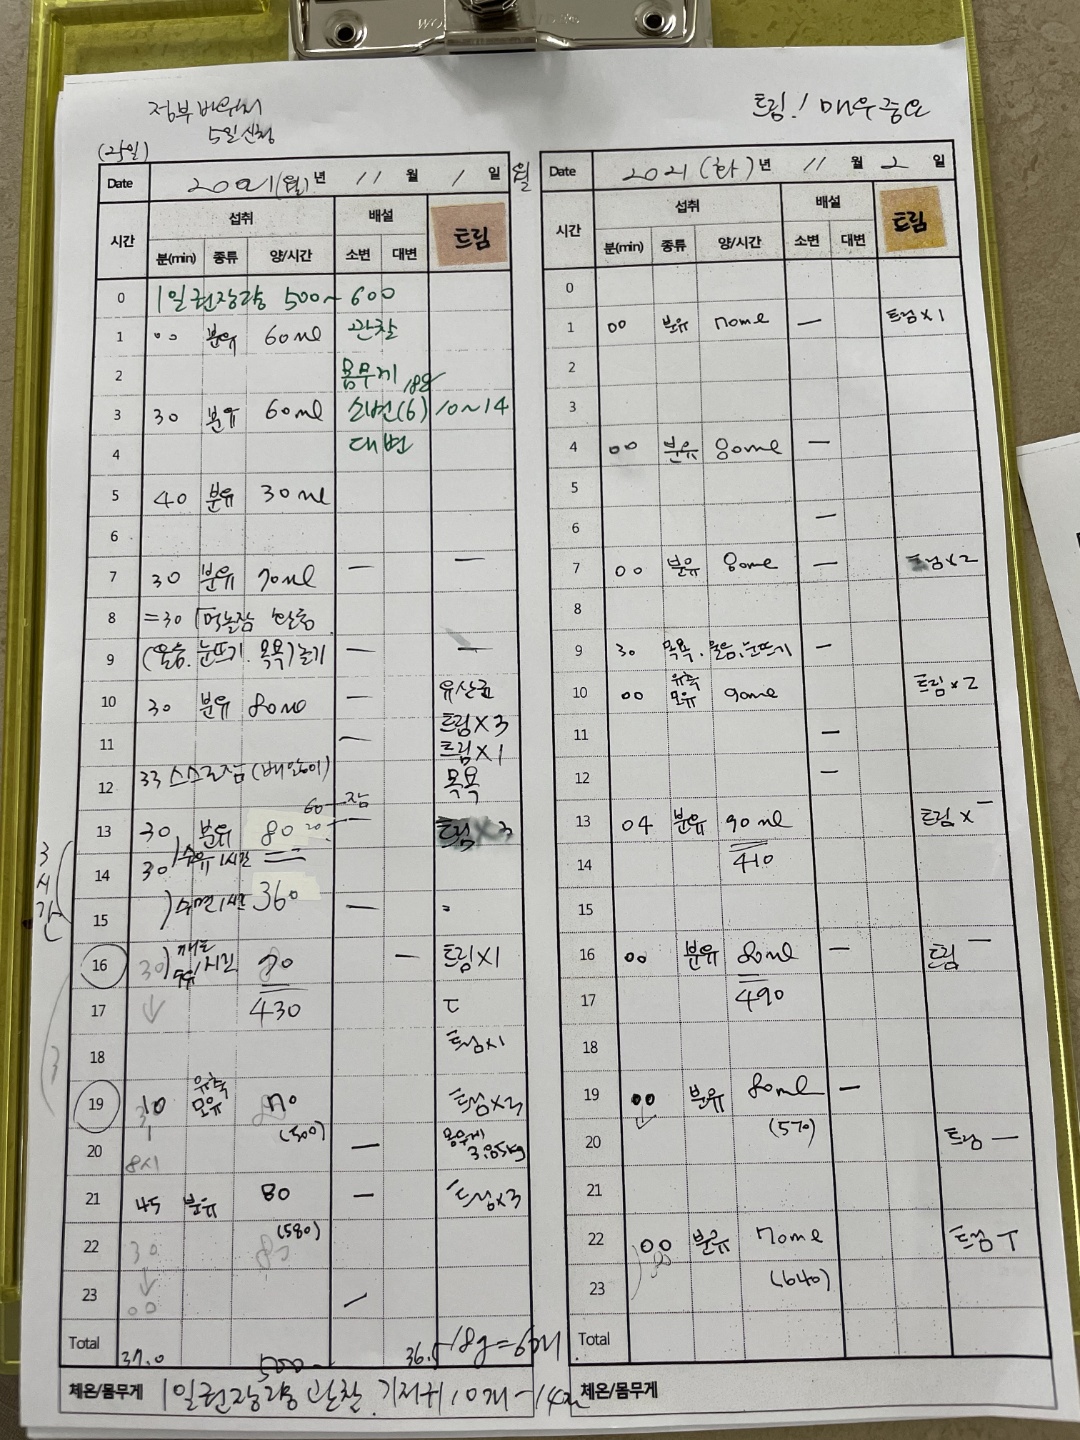 정부바우처
5일신청
트림! 매우중요
(25일)
Date 2021(월)년 11 월 1 일 월
시간 섭취 배설 트림
분(min) 종류 양/시간 소변 대변
0 1일권장량 500~600
1 00 분유 60ml 관찰
2 몸무게
3 30 분유 60ml 소변(6) 10~14
4 대변
5 40 분유 30ml
6
7 30 분유 70ml — —
8 =30 (먹놀잠
9 (울음.눈뜨기.목욕)놀기 — —
10 30 분유 80ml — 유산균
트림×3
11 — 트림×1
12 33 스스로잠 목욕
60 — 잠
13 30 분유 80 20 — 트림×3
3시간
14 30 )수유1시간
15 )수면1시간 360 —
16 30 )1시간 70 — 트림×1
17 430 T
18 트림×1
19 30 유축모유 70 트림×2
(500)
20 8시 — 몸무게 3.85kg
21 45 분유 80 — 트림×3
(580)
22 30 80
23 00 —
Total 37.0 500 36.5 18g=6
체온/몸무게 1일권장량 관찰. 기저귀 10개~14
Date 2021(화)년 11 월 2 일
시간 섭취 배설 트림
분(min) 종류 양/시간 소변 대변
0
1 00 분유 70ml — 트림×1
2
3
4 00 분유 80ml —
5
6 —
7 00 분유 80ml — 트림×2
8
9 30 목욕.울음.눈뜨기 —
10 00 유축모유 90ml 트림×2
11 —
12 —
13 04 분유 90ml 트림× —
14 410
15
16 00 분유 80ml — 트림 —
17 490
18
19 00 분유 80ml —
20 (570) 트림 —
21
22 00 분유 70ml 트림 T
23 (640)
Total
체온/몸무게